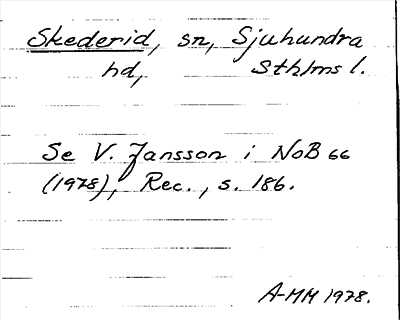 Skederid, sn, Sjuhundra
hd, Sthlms l.
Se V. Jansson i NoB 66
(1978), Rec., s. 186.
A-MM 1978.